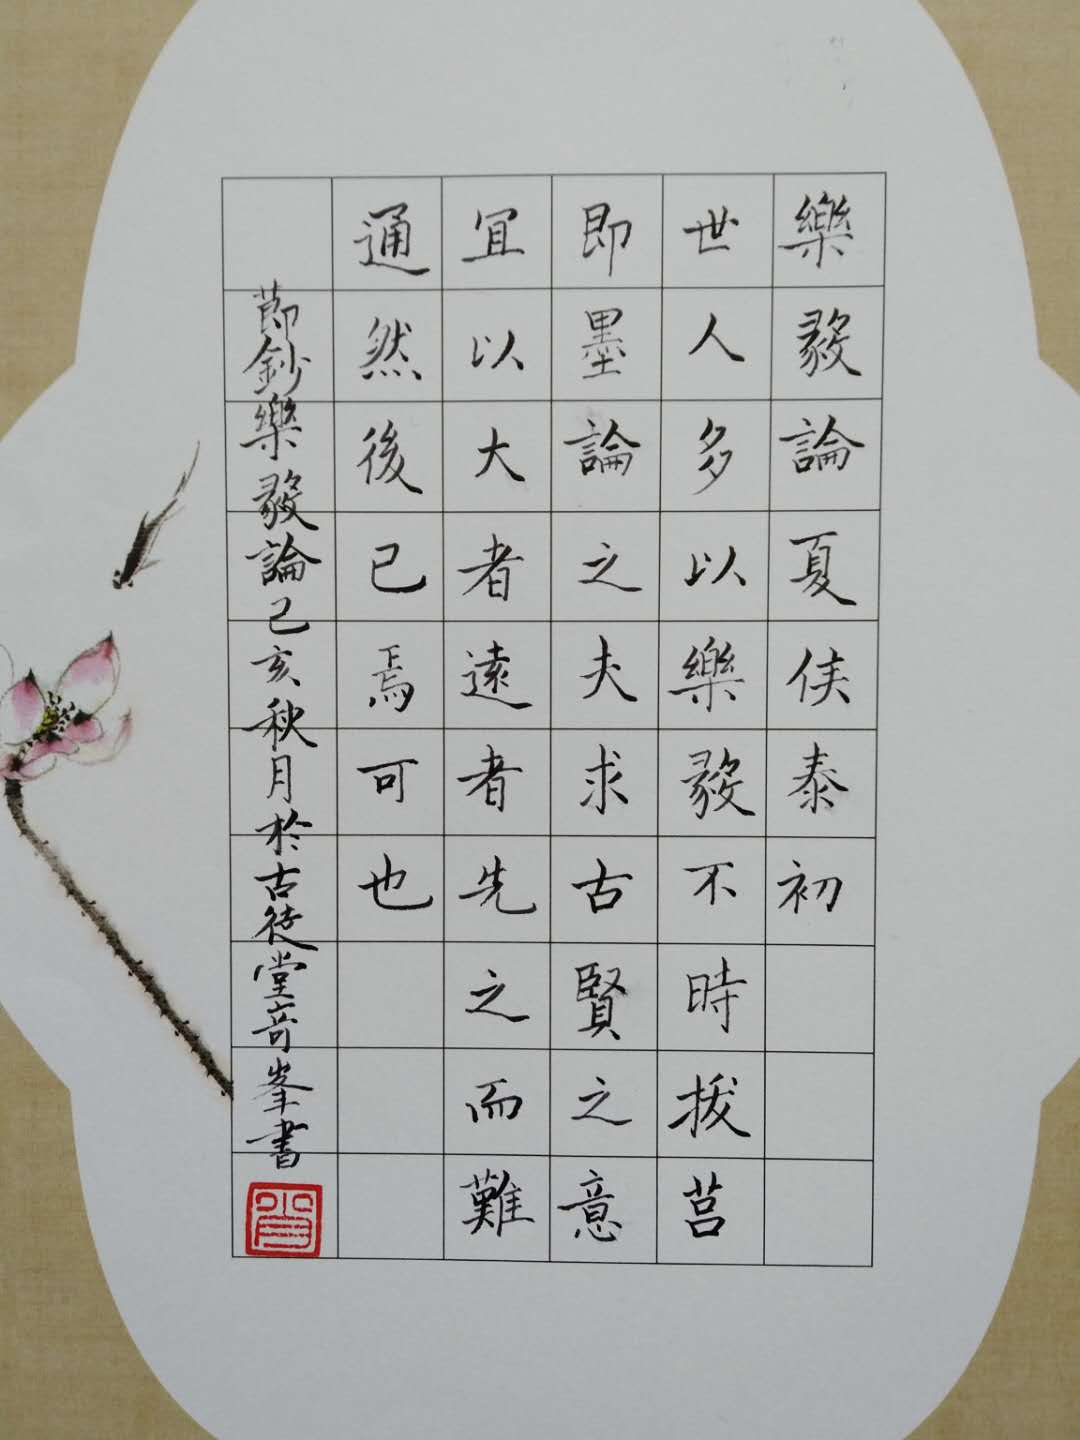 樂毅論夏侯泰初
世人多以樂毅不時拔莒
即墨論之夫求古賢之意
宜以大者遠者先之而難
通然後已焉可也
節鈔樂毅論己亥秋月於古徒堂奇峯書